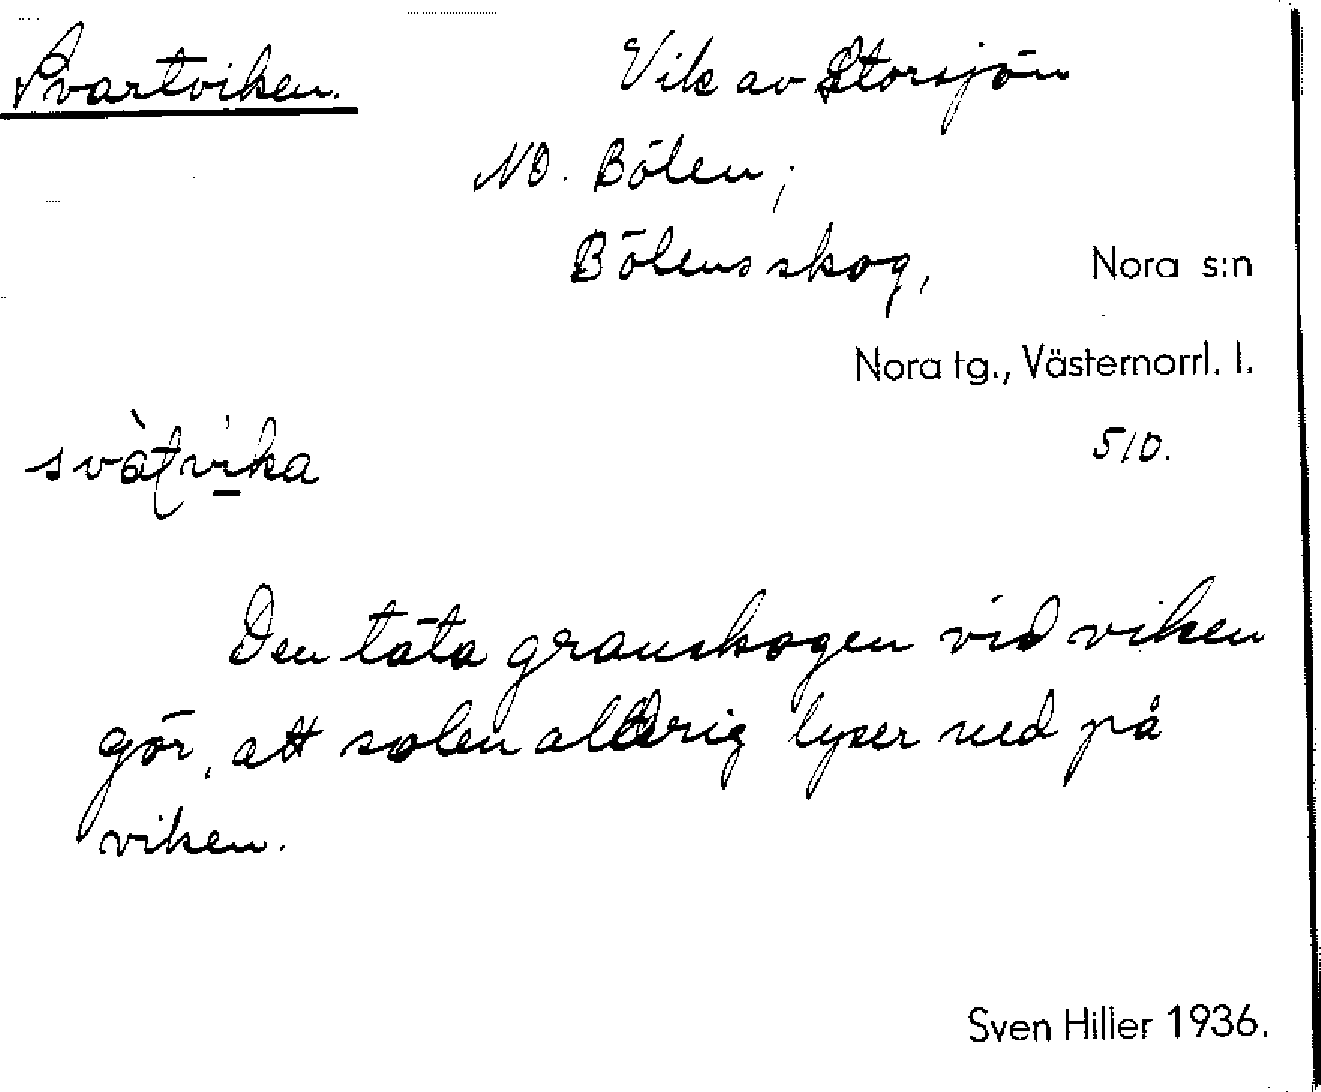 Svartviken. Vik av Storsjön
NO. Bölen;
Bölens skog, Nora s:n
Nora tg., Västernorrl. l.
svàtvika 510.
Den täta granskogen vid viken
gör, att solen alldrig lyser ned på
viken.
Sven Hiller 1936.